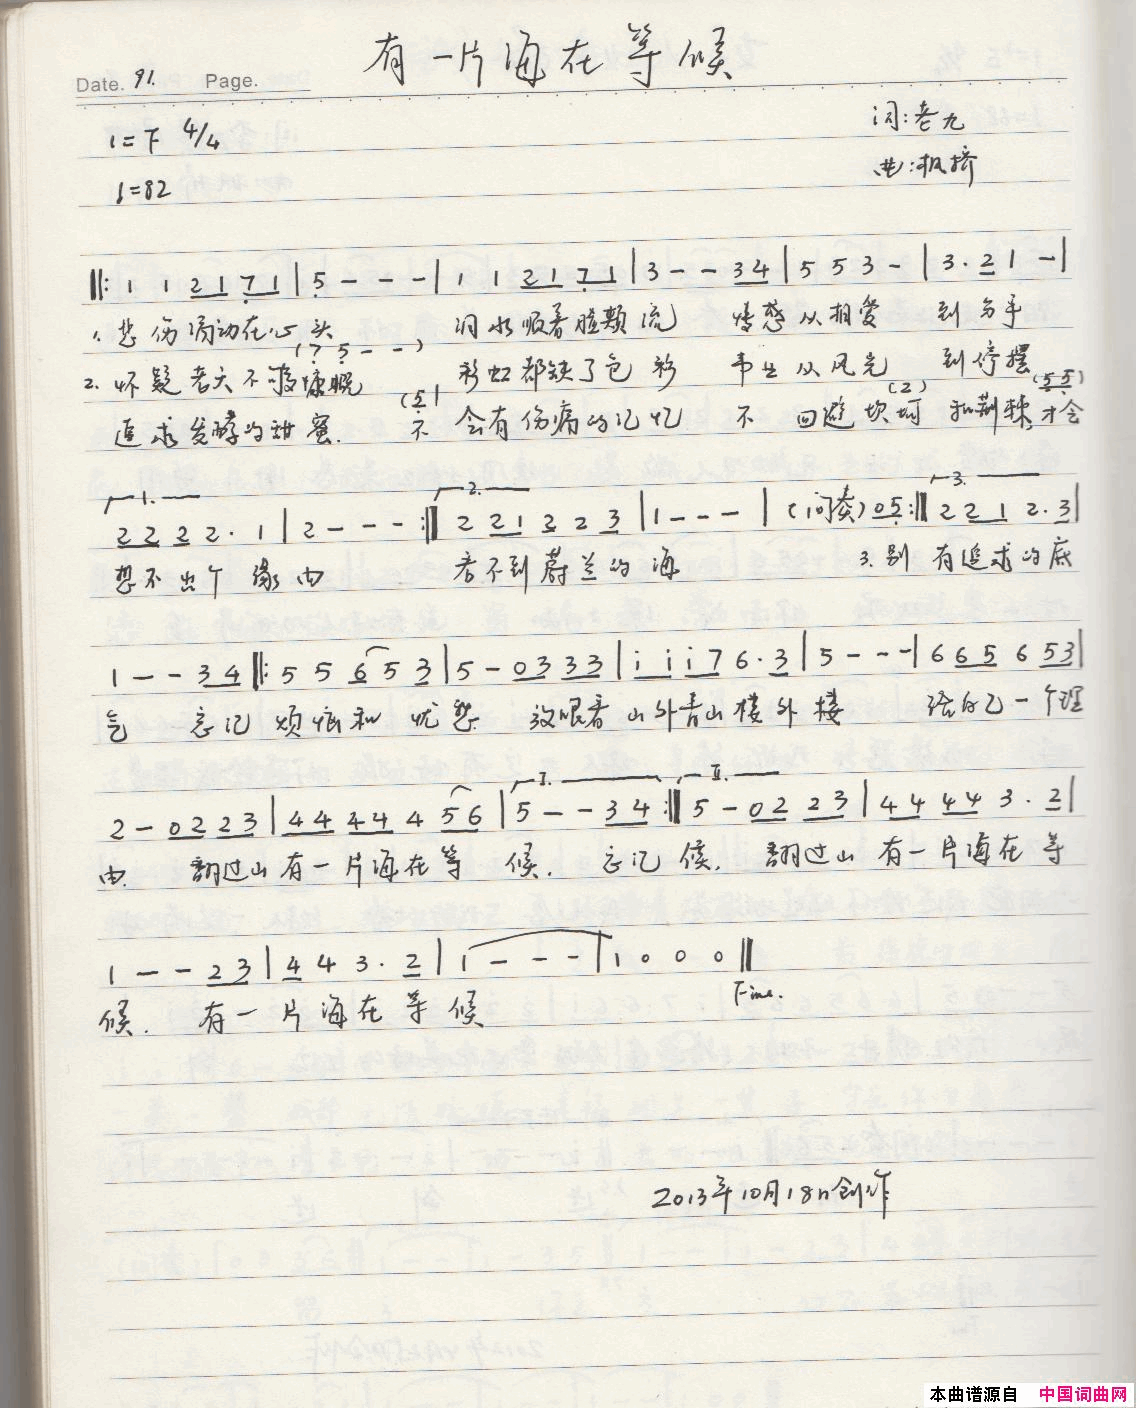 有一片海在等候
Date. 91. Page.
1=F 4/4
词:老九
♩=82
曲:枫桥
‖: 1 1 2 1 7 1 | 5 - - - | 1 1 2 1 7 1 | 3 - - 3 4 | 5 5 3 - | 3. 2 1 - |
1. 悲伤涌动在心头 泪水顺着脸颊流 情感从相爱 到分手
(7 5 - -)
2. 怀疑老天不够慷慨 彩虹都缺了色彩 从风光 到停摆
(5 | (2) (5 5)
追求发酵的甜蜜. 不 会有伤痛的记忆 不 回避坎坷 和荆棘, 才会
1. 2. 3.
2 2 2 2. 1 | 2 - - - :‖ 2 2 1 2 2 3 | 1 - - - | (间奏) 0 5 :‖ 2 2 1 2. 3 |
想不出个缘由 看不到蔚兰的海 3. 别 有追求的底
1 - - 3 4 ‖: 5 5 6 5 3 | 5 - 0 3 3 3 | i i i 7 6. 3 | 5 - - - | 6 6 5 6 5 3 |
气 忘记 烦恼和忧愁 放眼看 山外青山楼外楼 给自己一个理
I. II.
2 - 0 2 2 3 | 4 4 4 4 4 5 6 | 5 - - 3 4 :‖ 5 - 0 2 2 3 | 4 4 4 4 3. 2 |
由. 翻过山 有一片海在等 候. 忘记 候. 翻过山 有一片海在等
1 - - 2 3 | 4 4 3. 2 | 1 - - - | 1 0 0 0 ‖
候. 有一片海在等候 Fine.
2013年10月18日创作
本曲谱源自 中国词曲网